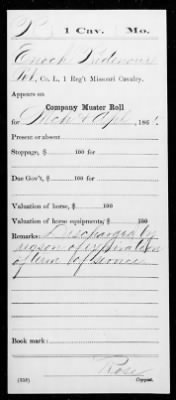 R | 1 Cav. | Mo.
Enoch Ridenour
Pvt, Co. L, 1 Reg't Missouri Cavalry.
Appears on
Company Muster Roll
for Mch & Apl, 186
Present or absent
Stoppage, $ 100 for
Due Gov't, $ 100 for
Valuation of horse, $ 100
Valuation of horse equipments, $ 100
Remarks: Discharged by
reason of expiration
of term of service
Book mark:
Rose
(358) Copyist.